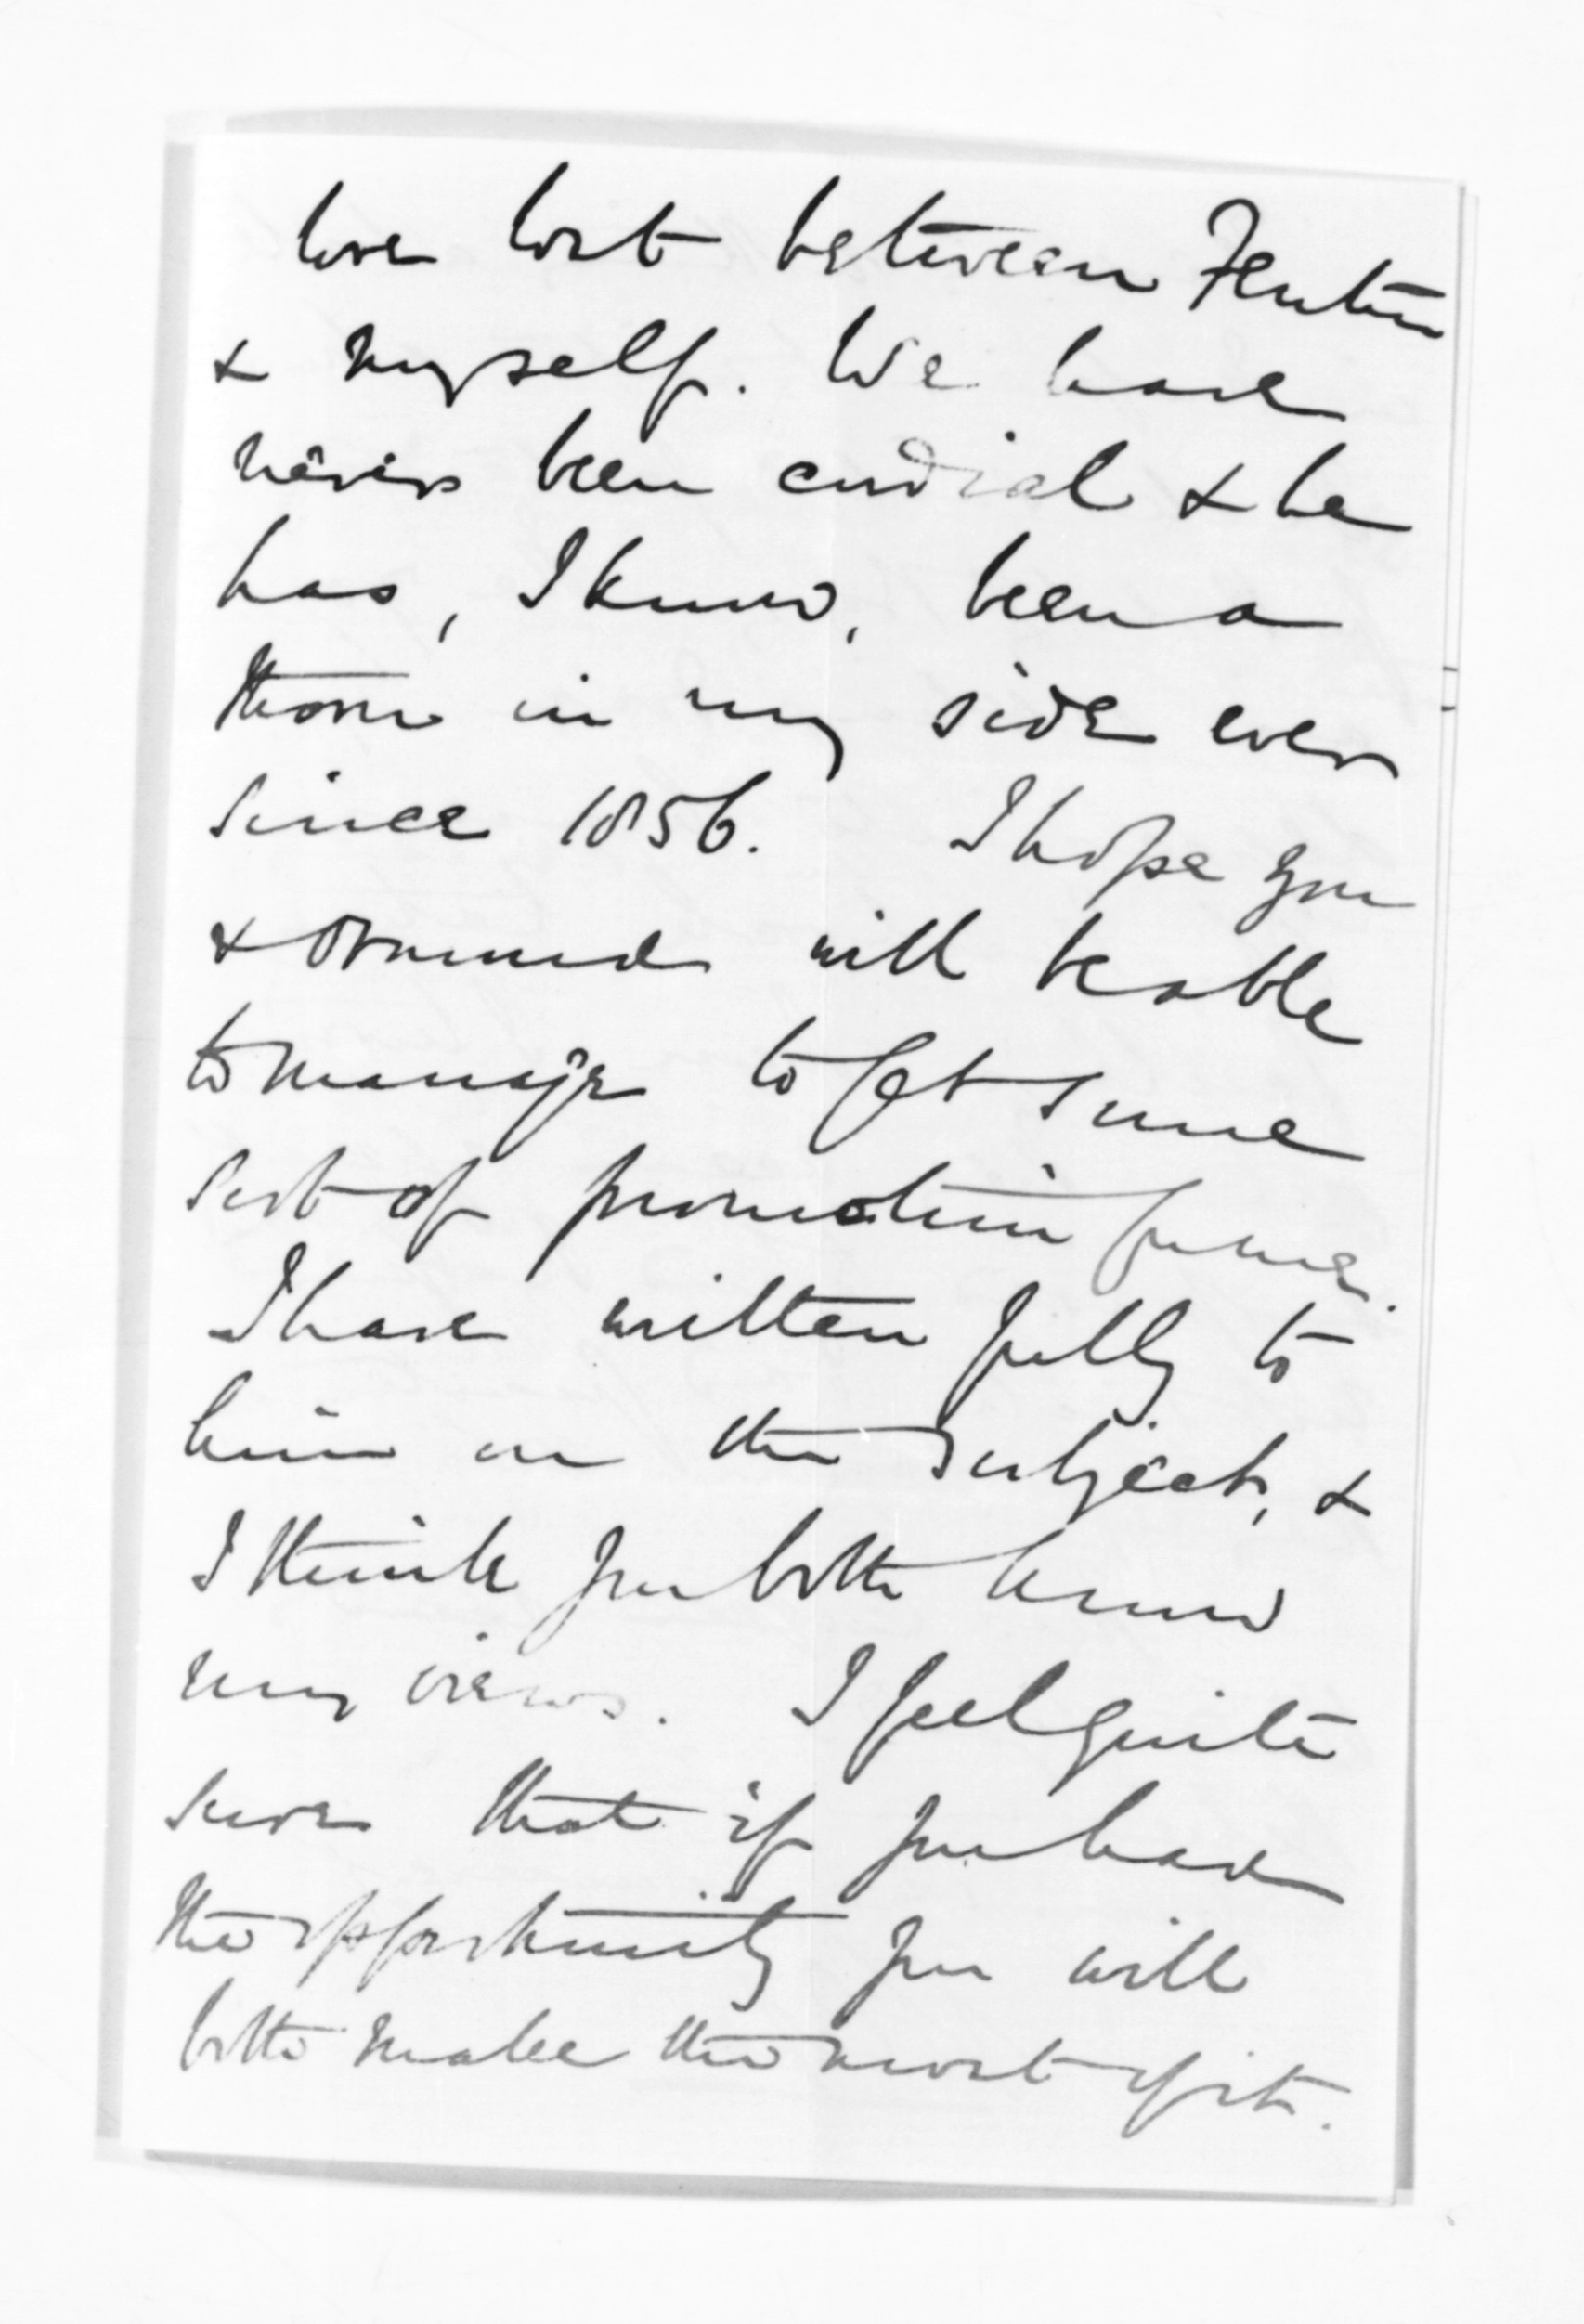 love lost between Fenton
& myself. We have
never been cordial & he
has, I know, been a
thorn in my side ever
since 1856. I hope you
& Ormond will be able
to manage to get some
sort of promotion for me.
I have written fully to
him on the subject, &
I think you both know
my views. I feel quite
sure that if you have
the opportunity you will
both make the most of it.